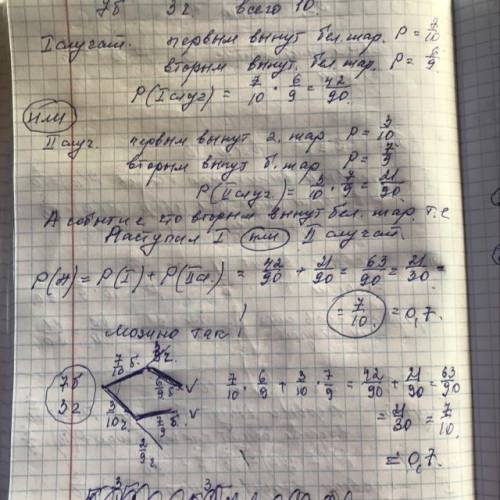 7б 3г всего 10.
I случай. первым вынут бел. шар. P = 7/10
вторым вынут. бел. шар. P = 6/9
P(I случ) = 7/10 · 6/9 = 42/90.
или
II случ. первым вынут г. шар P = 3/10
вторым вынут б. шар P = 7/9
P(II случ) = 3/10 · 7/9 = 21/90.
A событие что вторым вынут бел. шар. т.е
Наступил I или II случай.
P(A) = P(I) + P(II сл.) = 42/90 + 21/90 = 63/90 = 21/30 =
= 7/10. = 0,7.
Можно так!
7б 3г
7/10 б. 3/9 г. 6/9 б. v
3/10 г. 7/9 б. v 2/9 г.
7/10 · 6/9 + 3/10 · 7/9 = 42/90 + 21/90 = 63/90
= 21/30 = 7/10.
= 0,7.